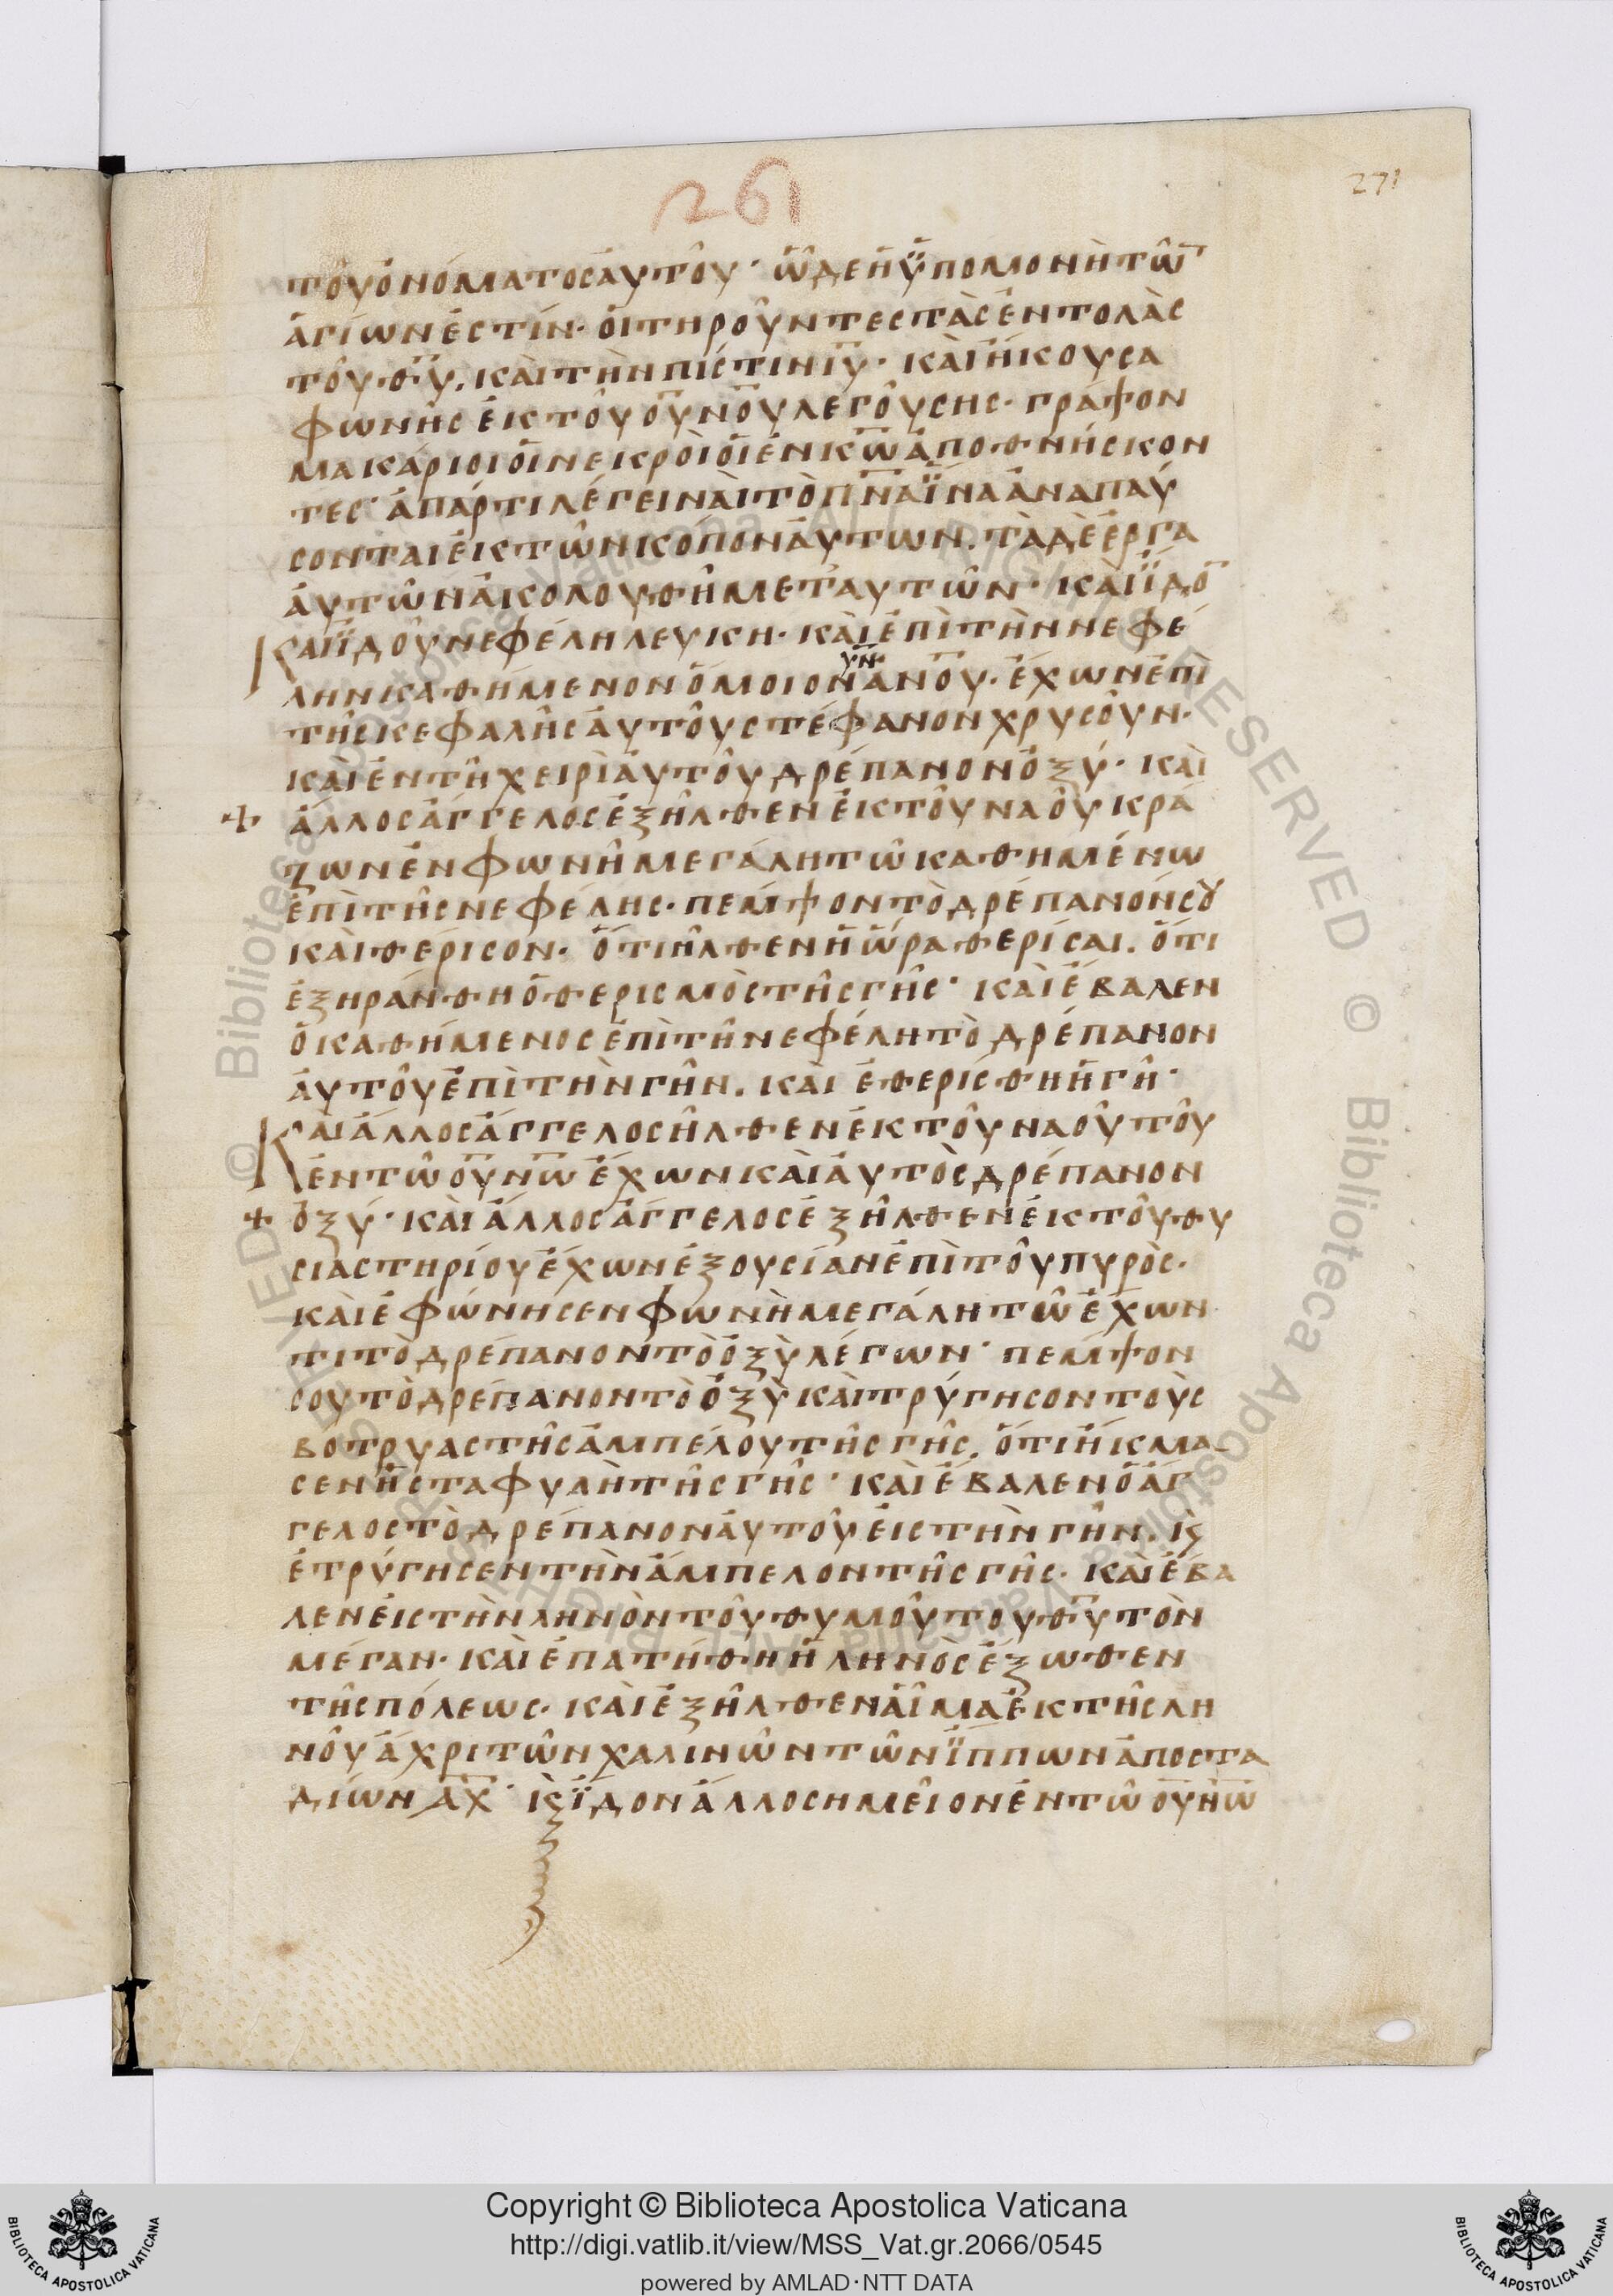 261
271
τοῦ ὀνόματος ἀυτοῦ· ὧδε ἡ ϋπομονὴ τῶ̅
ἁγίων ἐστίν· ὁι τηροῦντες τὰς ἐντολὰς
τοῦ θ̅υ̅. κὰι τὴν πίστιν ι̅υ̅· κὰι ἤκουσα
φωνῆς ἐκ τοῦ ο̅υ̅ν̅ο̅υ̅ λεγούσης· γράψον
μακάριοι ὁι νεκρὸι ὁι ἐν κ̅ω̅ ἀποθνήσκον
τες ἀπάρτι λέγει νὰι τὸ π̅ν̅α̅ ἵνα ἀναπαύ
σονται ἐκ τῶν κόπον ἀυτων. τὰ δὲ ἔργα
ἀυτῶν ἀκολουθῆ μετ' αυτῶν· κὰι ἰδο̅
Και ϊδοὺ νεφέλη λευκη· κὰι ἐπὶ τὴν νεφέ
υ̅ν̅·
λην καθήμενον ὅμοιον α̅ν̅ο̅υ̅· ἔχων ἐπὶ
τῆς κεφαλῆς ἀυτοῦ στέφανον χρυσοῦν·
κὰι ἐν τῆ χειρὶ ἀυτοῦ δρέπανον ὀξύ· κὰι
+ ἄλλος ἄγγελος ἐξῆλθεν ἐκ τοῦ ναοῦ κρά
ζων ἐν φωνῆ μεγάλη τῶ καθημένω
ἐπὶ τῆς νεφέλης· πεμψον τὸ δρέπανον σȣ
κὰι θέρισον· ὅτι ἦλθεν ἡ ὥρα θερίσαι. ὅτι
ἐξηράνθη ὁ θερισμὸς τῆς γῆς· κὰι ἔβαλεν
ὁ καθήμενος ἐπὶ τῆ νεφέλη τὸ δρέπανον
ἀυτοῦ ἐπὶ τὴν γῆν. κὰι ἐθερίσθη ἡ γῆ·
Κὰι ἄλλος ἄγγελος ἦλθεν ἐκ τοῦ ναοῦ τοῦ
ἐν τῶ ο̅υ̅ν̅ω̅ ἔχων κὰι ἀυτὸς δρέπανον
+ ὀξύ· κὰι ἄλλος ἄγγελος ἐξῆλθεν ἐκ τοῦ θυ
σιαστηρίου ἔχων ἐξουσίαν ἐπὶ τοῦ πυρὸς·
κὰι ἐφώνησεν φωνὴ μεγάλη τῶ ἔχων
τι τὸ δρέπανον τὸ ὀξὺ λέγων· πεμψον
σου τὸ δρέπανον τὸ ὀξὺ κὰι τρύγησον τοὺς
βοτρυας τῆς ἀμπέλου τῆς γῆς. ὅτι ἤκμα
σεν ἡ σταφυλὴ τῆς γῆς· κὰι ἔβαλεν ὁ ἄγ
γελος τὸ δρέπανον ἀυτοῦ ἐις τὴν γῆν. κ̀ς
ἐτρύγησεν τὴν ἄμπελον τῆς γῆς· κὰι ἔβα
λεν ἐις τὴν ληνὸν τοῦ θυμοῦ του θ̅υ̅ τὸν
μέγαν· κὰι ἐπατήθη ἡ ληνὸς ἔξωθεν
τῆς πόλεως· κὰι ἐξῆλθεν ἁῖμα ἐκ τῆς λη
νοῦ ἄχρι τῶν χαλινῶν τῶν ϊππων ἀποστα
δίων ͵α̅χ̅· κ̀ς ϊδον ἄλλο σημεῖον ἐν τῶ ο̅υ̅ν̅ω̅
© Biblioteca Apostolica Vaticana ALL RIGHTS RESERVED
Copyright © Biblioteca Apostolica Vaticana
http://digi.vatlib.it/view/MSS_Vat.gr.2066/0545
powered by AMLAD·NTT DATA
BIBLIOTECA APOSTOLICA VATICANA
BIBLIOTECA APOSTOLICA VATICANA